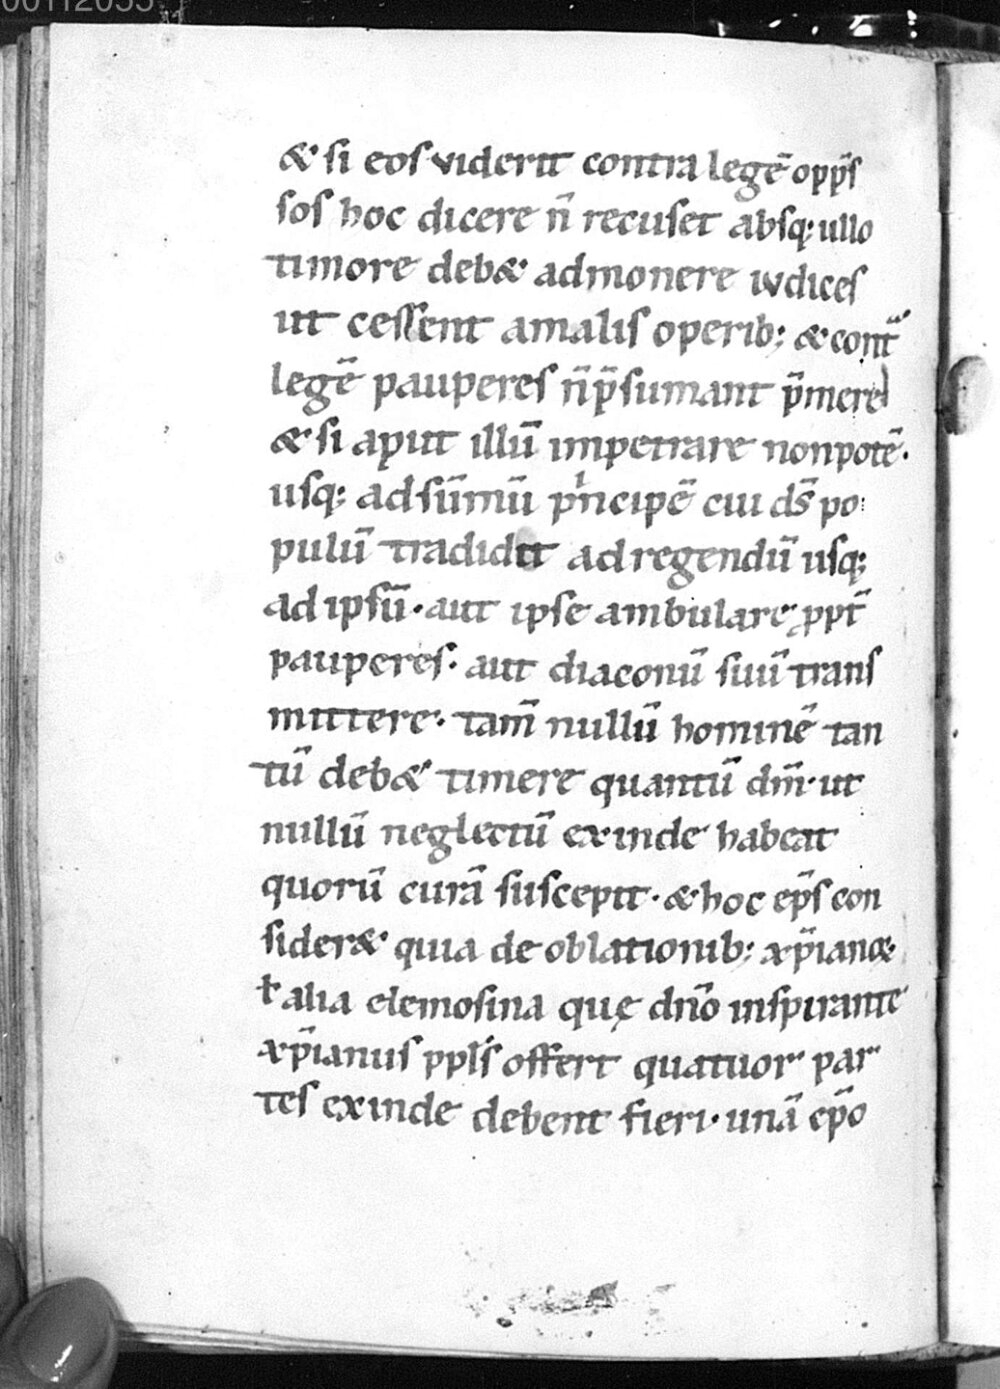 00112055
& si eos viderit contra legē opp̄s
sos hoc dicere n̄ recuset absq; ullo
timore deb& admonere iudices
ut cessent a malis operib; & cont̄
legē pauperes n̄ p̄sumant p̄mere
& si aput illū impetrare non potē.
usq; ad sūmū pⁱncipē cui d̄s po
pulū tradidit ad regendū usq;
ad ipsū. aut ipse ambulare ꝓpt̄
pauperes. aut diaconū suū trans
mittere. tam̄ nullū hominē tan
tū deb& timere quantū dm̄. ut
nullū neglectū exinde habeat
quorū curā suscepit. & hoc ep̄s con
sider& quia de oblationib; xp̄iane
ł alia elemosina quę dn̄o inspirante
xp̄ianus ppl̄s offert quatuor par
tes exinde debent fieri. unā ep̄o